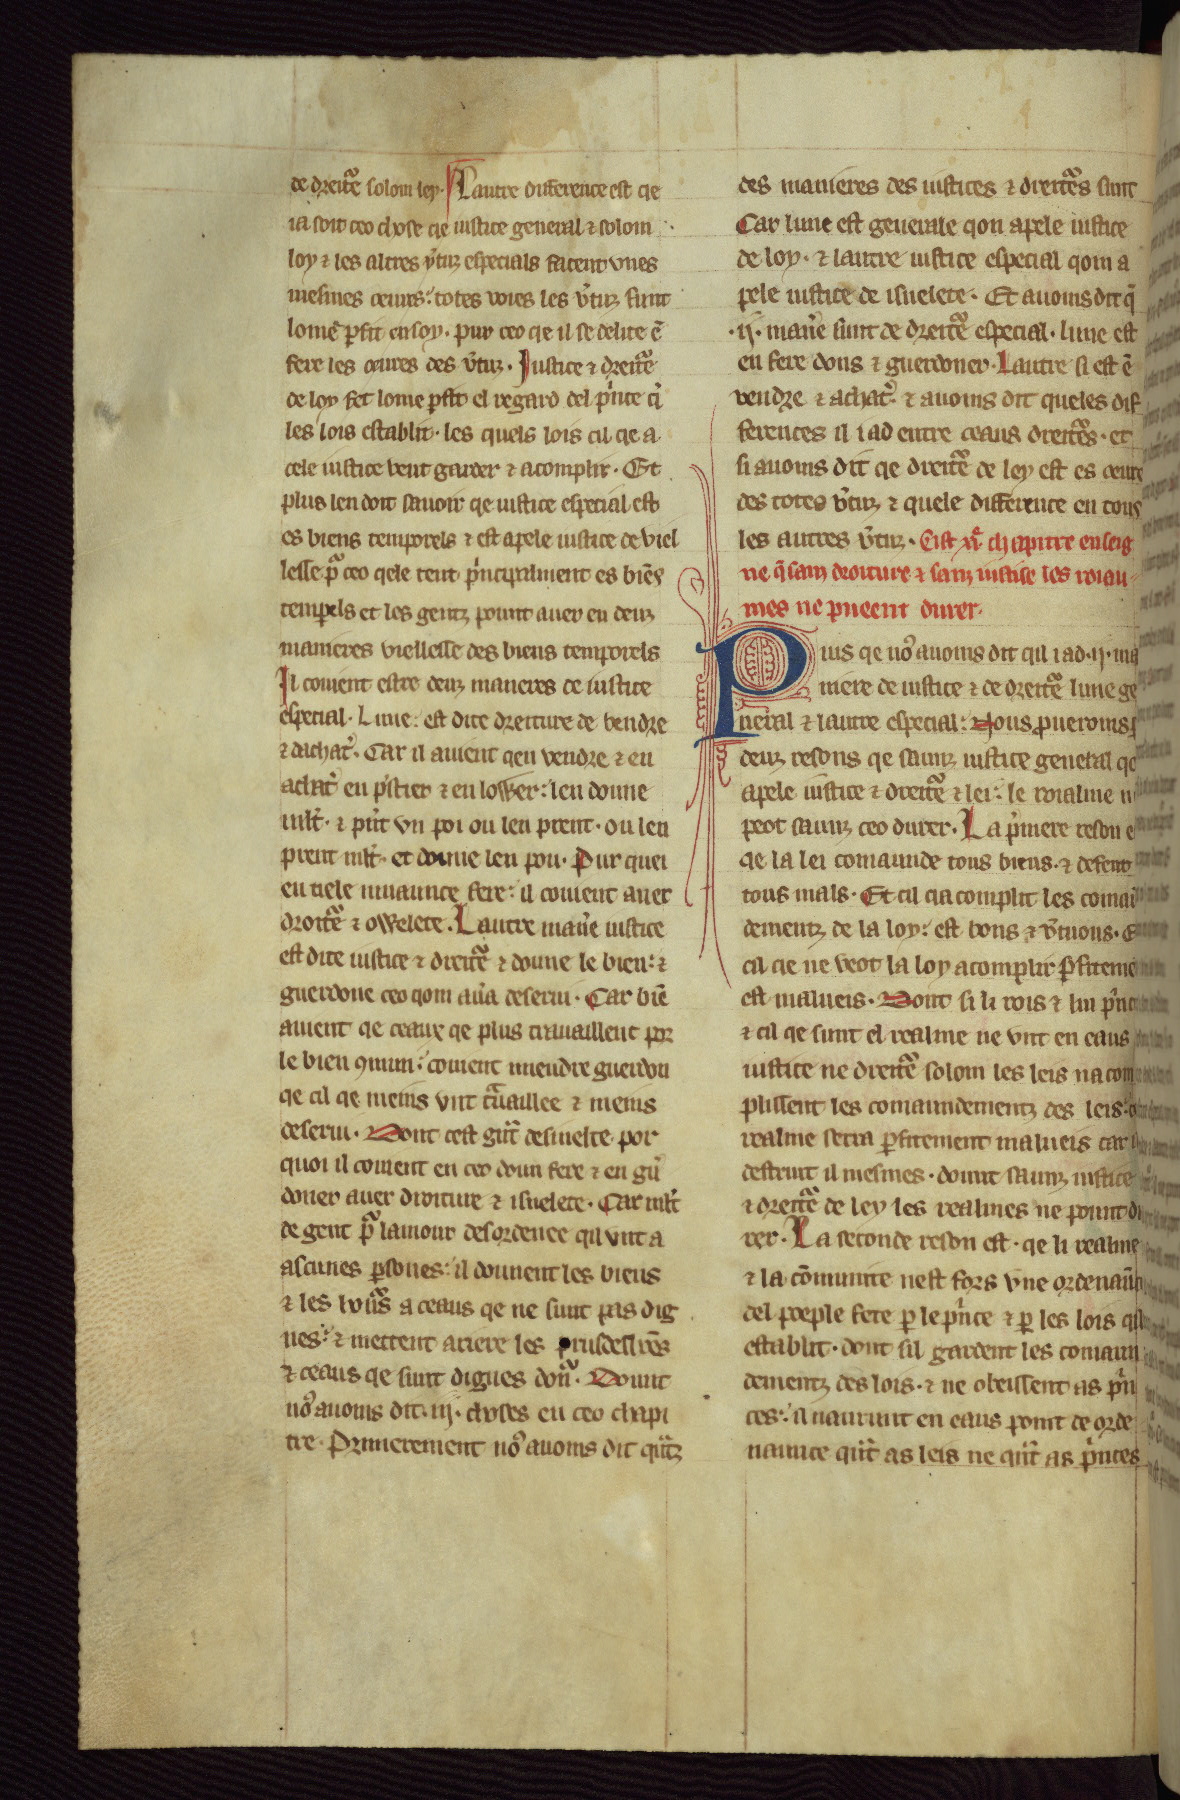 de dreit̃e solom ley. Lautre difference est qe
ia soit ceo chose qe iustice general ⁊ solom
loy ⁊ les altres v̾tuz especials facent vnes
mesmes oeures: totes voies les v̾tuz sunt
lomẽ ꝑfit en soy. pur ceo qe il se delite ẽ
fere les oeures des v̾tuz. Iustice ⁊ dreit̃e
de loy fet lome ꝑfit el regard del p̾nce q̾
les lois establit. les quels lois cil qe a
cele iustice veut garder ⁊ acomplir. Et
plus len doit sauoir qe iustice especial est
es biens temporels ⁊ est apele iustice de viel
lesse ꝑ ceo qele tent p̾ncipalment es biẽs
temꝑels et les gentz pount auer en deuz
manieres viellesse des biens temporels
Il couient estre deuz maneres de iustice
especial. Lune: est dite dreiture de vendre
⁊ dachat̾. Car il auient qen vendre ⁊ en
achat̾ en p̾stier ⁊ en lower: len donne
mlt̾. ⁊ p̾nt vn poi ou len prent. ou len
prent mlt̾. et donne len pou. Pur quei
en tiele muaunce fere: il couient auer
droit̃e ⁊ owelete. Lautre mañe iustice
est dite iustice ⁊ dreit̃e ⁊ donne le bien: ⁊
guerdone ceo qom au̾a deserui. Car biẽ
auient qe ceaux qe plus trauaillent por
le bien ꝯmun: couient meendre guerdon
qe cil qe meins vnt tᷓuaillee ⁊ meins
deserui. Dont cest gñt desuelte por
quoi il couient en ceo doun fere ⁊ en gũ
doner auer droiture ⁊ isuelete. Car mlt̾
de gent ꝑ lamour desordenee qil vnt a
ascunes ꝑsones: il donnent les biens
⁊ les hoñs a ceaus qe ne sunt pas dig
nes: ⁊ mettent ariere les prusdesh̾es
⁊ ceaus qe sunt dignes doñ. Dount
no᷒ auoms dit .iij. choses en ceo chapi
tre. Primerement no᷒ auoms dit qũtz
des manieres des iustices ⁊ dreit̃es sunt
Car lune est generale qon apele iustice
de loy. ⁊ lautre iustice especial qom a
pele iustice de isuelete. Et auoms dit q̃
.ij. mañe sunt de dreit̃e especial. lune est
en fere dons ⁊ guerdoner. Lautre si est ẽ
vendre ⁊ achat̾. ⁊ auoms dit queles dif
ferences il i ad entre ceaus dreit̃es. et
si auoms dit qe dreit̃e de ley est es oeure
des totes v̾tuz ⁊ quele difference en touz
les autres v̾tuz. Cist xͤ chapitre enseig
ne q̃ sanz droiture ⁊ sanz iustise les roiau
mes ne pueent durer.
Puis qe no᷒ auoms dit qil i ad .ij. ma
niere de iustice ⁊ de dreit̃e lune ge
neral ⁊ lautre especial: Nous ꝓueroms
deuz resons qe saunz iustice general qe
apele iustice ⁊ dreit̃e ⁊ lei: le roialme n
peot saunz ceo durer. La p̾mere reson e
qe la lei comaunde tous biens. ⁊ defent
tous mals. Et cil qacomplit les comaũ
dementz de la loy: est bons ⁊ v̾tuous. E
cil qe ne veot la loy acomplir ꝑfiteme
est malueis. Dont si li rois ⁊ lui p̾nce
⁊ cil qe sunt el realme ne vnt en eaus
iustice ne dreit̃e solom les leis nacom
plissent les comaundementz des leis:
realme serra ꝑfitement malueis car
destruit il mesmes. dount saunz iustice
⁊ dreit̃e de ley les realmes ne pount du
rer. La seconde reson est. qe li realme
⁊ la cõmunite nest fors vne ordenaũ
del poeple fete ꝑ le p̾nce ⁊ ꝑ les lois qil
establit. dont sil gardent les comaun
dementz des lois. ⁊ ne obeissent as p̾n
ces: il naurunt en eaus point de orde
naunce qũt as leis ne qũt as p̾nces